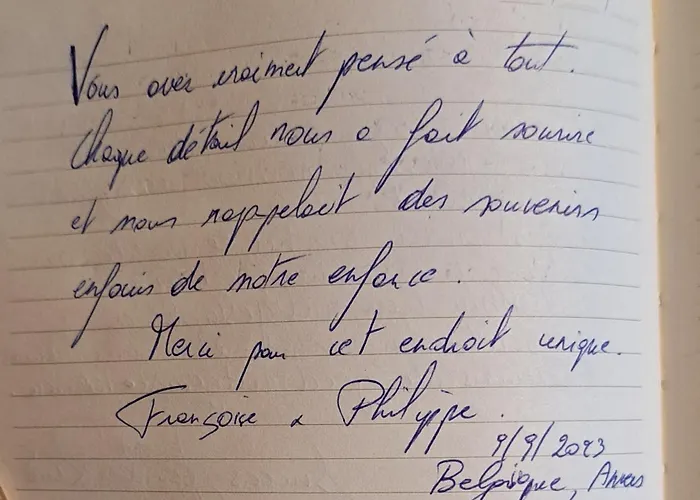 Vous avez vraiment pensé à tout.
Chaque détail nous a fait sourire
et nous rappelait des souvenirs
enfouis de notre enfance.
Merci pour cet endroit unique.
Françoise & Philippe.
9/9/2023
Belgique, Anvers